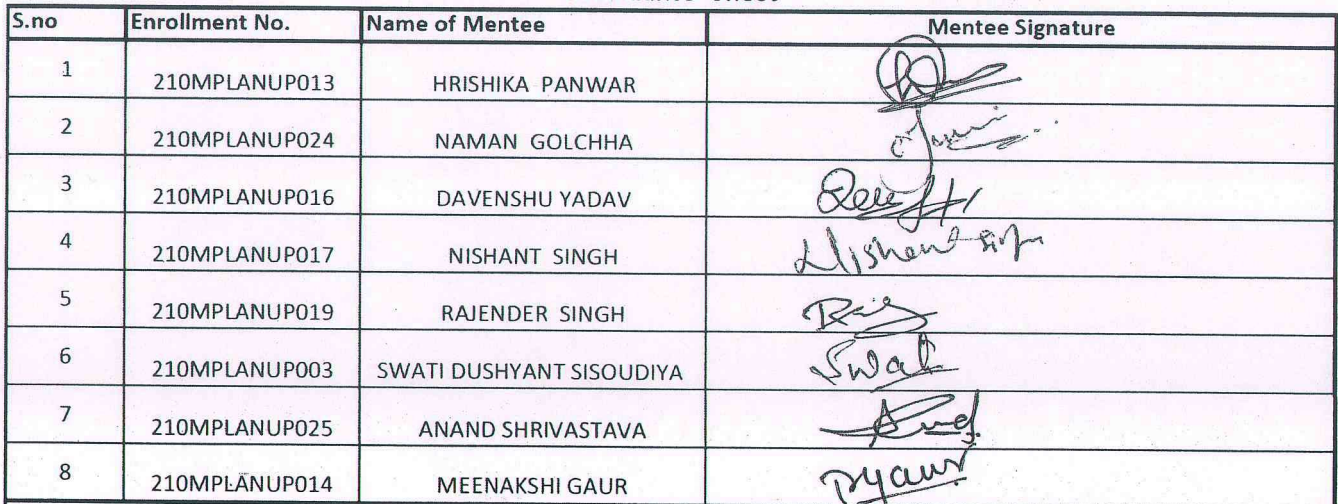 S.no Enrollment No. Name of Mentee Mentee Signature
1 210MPLANUP013 HRISHIKA PANWAR
2 210MPLANUP024 NAMAN GOLCHHA
3 210MPLANUP016 DAVENSHU YADAV
4 210MPLANUP017 NISHANT SINGH Nishant Singh
5 210MPLANUP019 RAJENDER SINGH
6 210MPLANUP003 SWATI DUSHYANT SISOUDIYA Swati
7 210MPLANUP025 ANAND SHRIVASTAVA
8 210MPLANUP014 MEENAKSHI GAUR